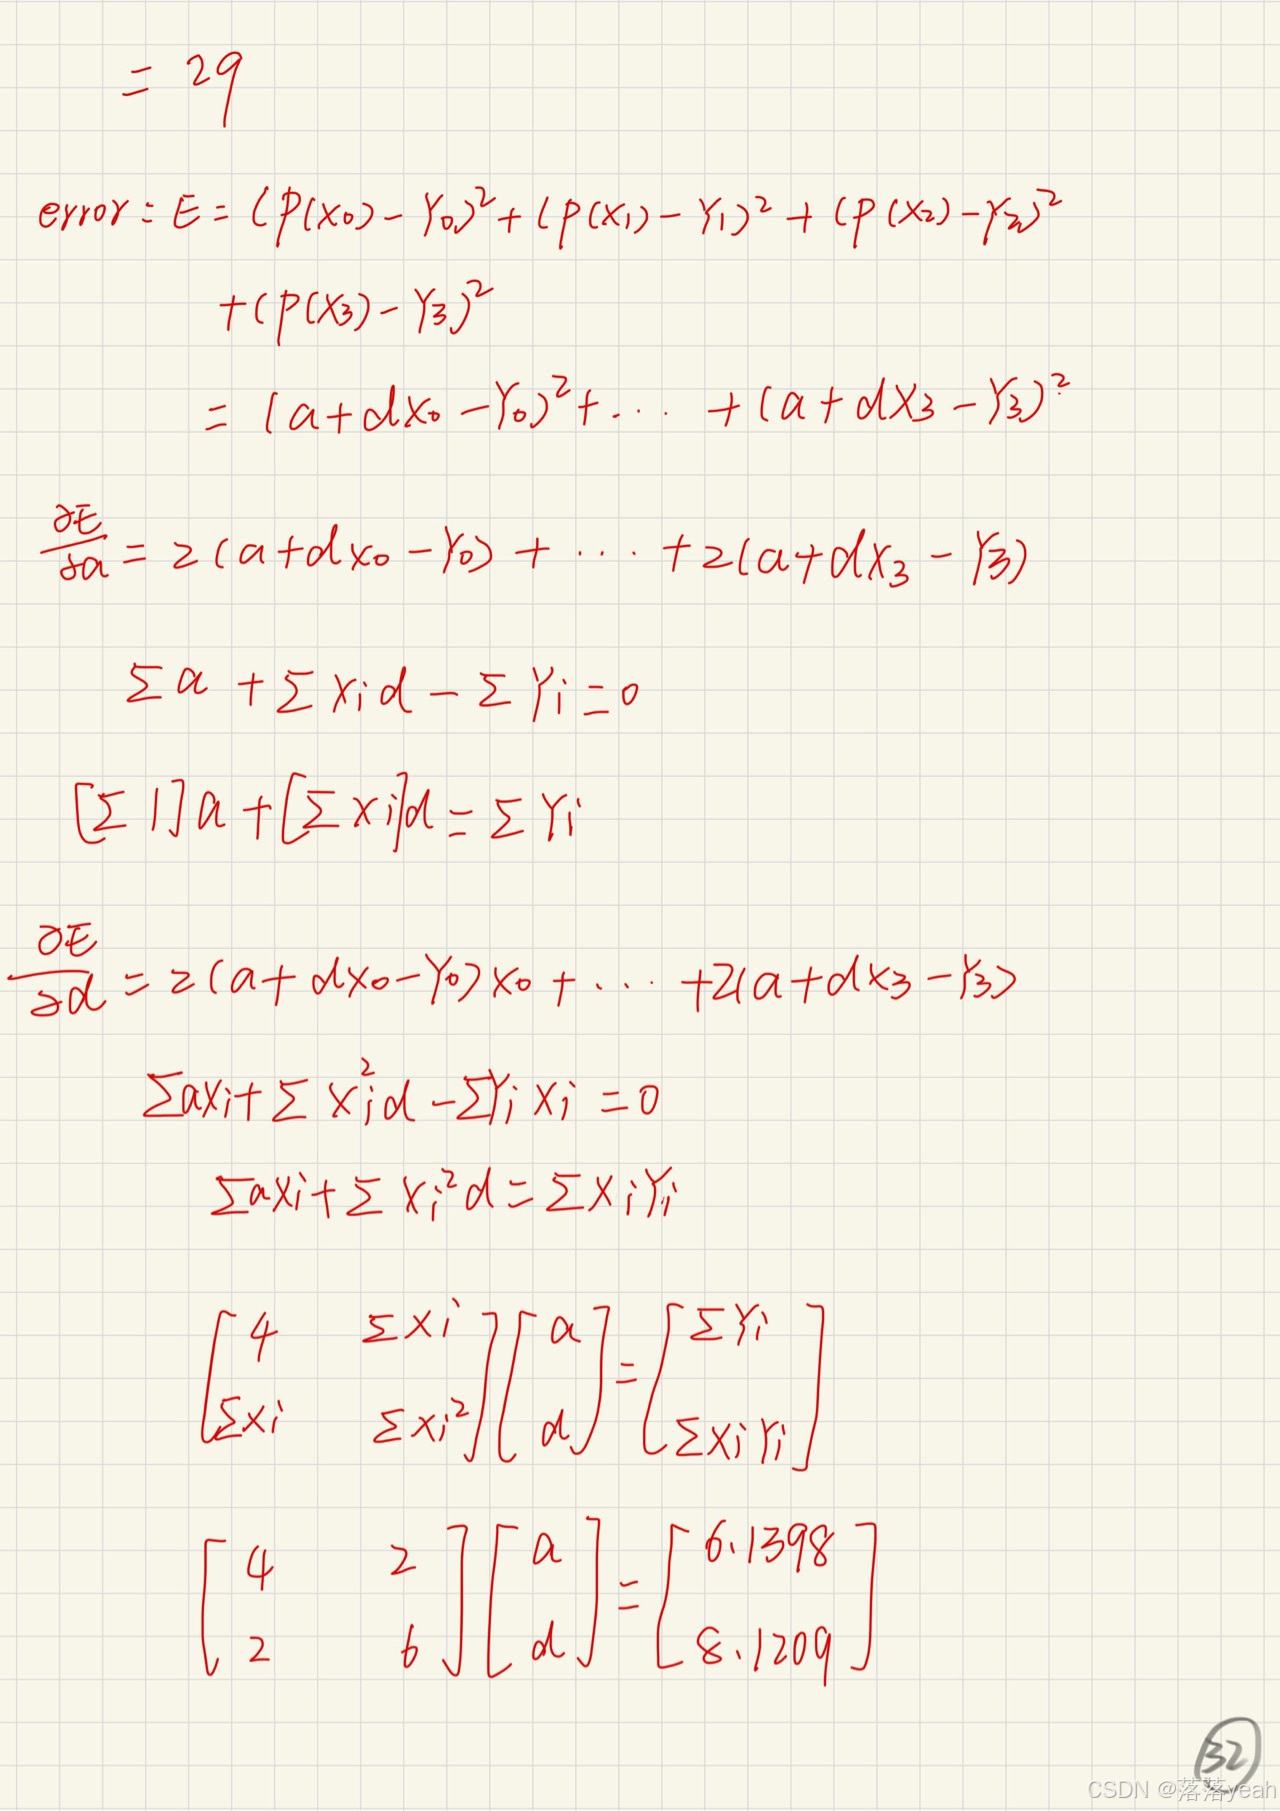 = 29
error: E = (P(x₀) - Y₀)² + (P(x₁) - Y₁)² + (P(x₂) - Y₂)²
+ (P(x₃) - Y₃)²
= (a + dx₀ - Y₀)² + ... + (a + dx₃ - Y₃)²
∂E/∂a = 2(a + dx₀ - Y₀) + ... + 2(a + dx₃ - Y₃)
Σa + Σxᵢd - ΣYᵢ = 0
[Σ1]a + [Σxᵢ]d = ΣYᵢ
∂E/∂d = 2(a + dx₀ - Y₀)x₀ + ... + 2(a + dx₃ - Y₃)
Σaxᵢ + Σxᵢ²d - ΣYᵢxᵢ = 0
Σaxᵢ + Σxᵢ²d = ΣxᵢYᵢ
[4 Σxᵢ] [a] = [ΣYᵢ]
[Σxᵢ Σxᵢ²] [d] [ΣxᵢYᵢ]
[4 2] [a] = [6.1398]
[2 6] [d] [8.1209]
32
CSDN @落落yeah